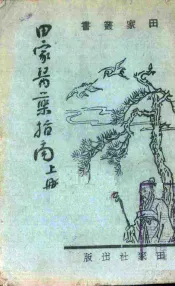 田家叢書
田家醫藥指南上册
田家社出版